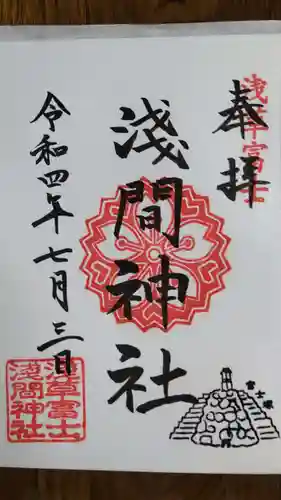 奉拝
浅草富士
淺間神社
令和四年七月三日
浅草富士
淺間神社
富士塚